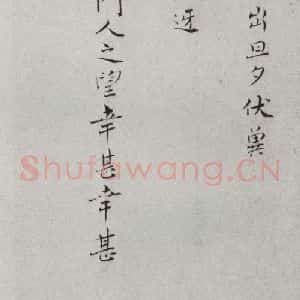 出旦夕伏冀
迓
门人之望幸甚幸甚
Shufawang.CN